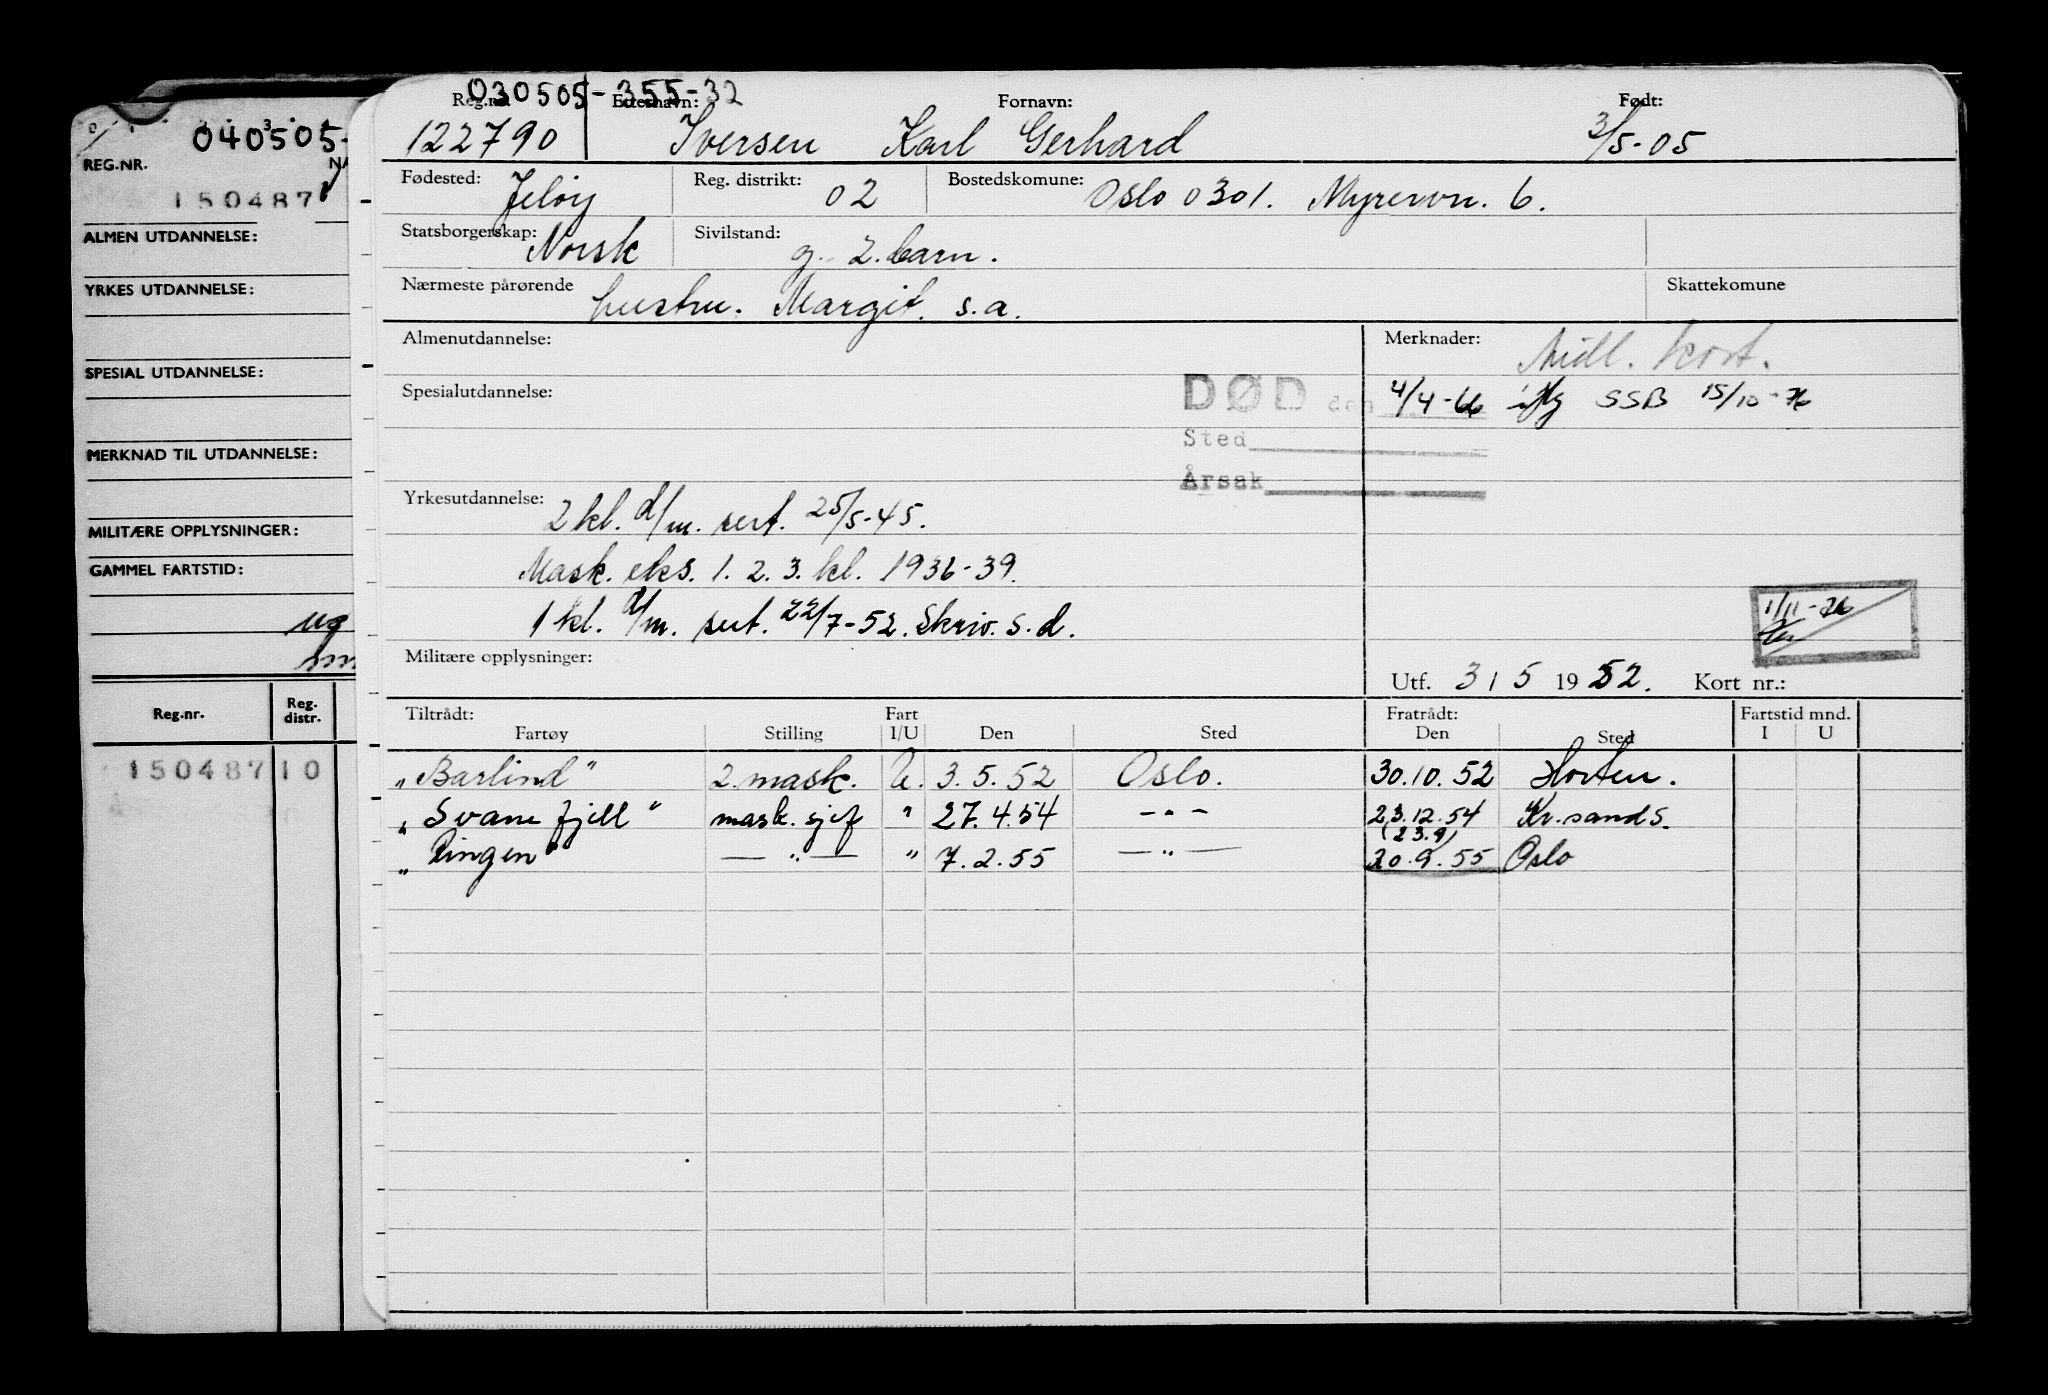 040505-
REG.NR.
150487
ALMEN UTDANNELSE:
YRKES UTDANNELSE:
SPESIAL UTDANNELSE:
MERKNAD TIL UTDANNELSE:
MILITÆRE OPPLYSNINGER:
GAMMEL FARTSTID:
Reg.nr. Reg. distr.
150487 10
030505-355-32
Reg.nr. Etternavn: Fornavn: Født:
122790 Iversen Karl Gerhard 3/5-05
Fødested: Jeløy Reg. distrikt: 02 Bostedskomune: Oslo 0301. Myrervn. 6.
Statsborgerskap: Norsk Sivilstand: g. 2. barn.
Nærmeste pårørende hustru. Margit. s.a. Skattekomune
Almenutdannelse: Merknader: Midl. kort.
Spesialutdannelse: DØD den 4/4-66 iflg SSB 15/10-76
Sted
Årsak
Yrkesutdannelse: 2 kl. d/m. sert. 25/5-45.
Mask. eks. 1. 2. 3. kl. 1936-39.
1 kl. d/m. sert. 22/7-52. Skriv. s.d.
1/11-76
Militære opplysninger:
Utf. 3 / 5 1952. Kort nr.:
Tiltrådt: Fart Fratrådt: Fartstid mnd.
Fartøy Stilling I/U Den Sted Den Sted I U
"Barlind" 2. mask. U. 3.5.52 Oslo. 30.10.52 Horten.
"Svanefjell" mask. sjef " 27.4.54 -"- 23.12.54 Kr.sand S.
(23.9)
"Ringen" —"— " 7.2.55 —"— 20.9.55 Oslo